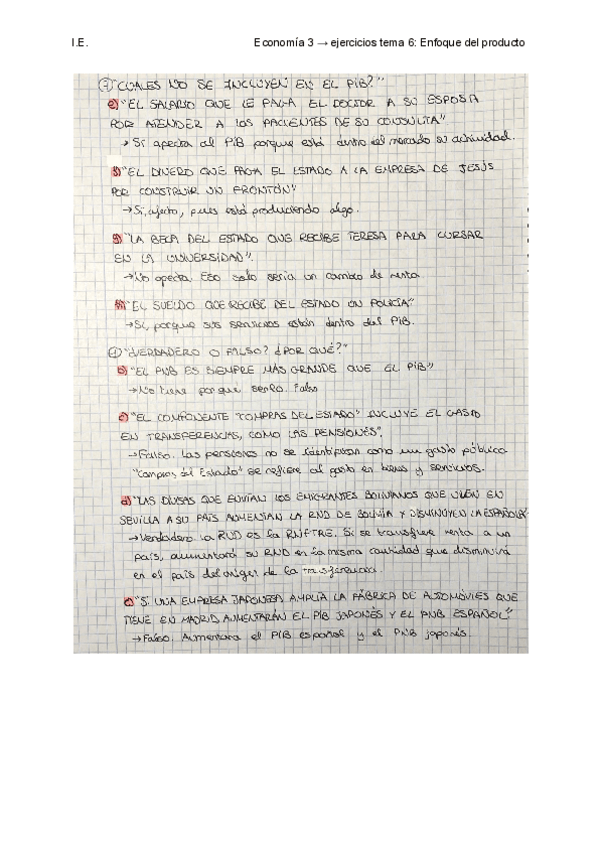 I.E.
Economía 3 → ejercicios tema 6: Enfoque del producto
⑦ "CUALES NO SE INCLUYEN EN EL PIB?"
e) "EL SALARIO QUE LE PAGA EL DOCTOR A SU ESPOSA
POR ATENDER A LOS PACIENTES DE SU CONSULTA"
→ Si afecta al PIB porque está dentro del mercado su actividad.
f) "EL DINERO QUE PAGA EL ESTADO A LA EMPRESA DE JESÚS
POR CONSTRUIR UN FRONTÓN"
→ Si, afecta, pues está produciendo algo.
g) "LA BECA DEL ESTADO QUE RECIBE TERESA PARA CURSAR
EN LA UNIVERSIDAD".
→ No afecta. Eso solo sería un cambio de renta.
h) "EL SUELDO QUE RECIBE DEL ESTADO UN POLICÍA"
→ Si, porque sus servicios están dentro del PIB.
"VERDADERO O FALSO? ¿POR QUÉ?"
b) "EL PNB ES SIEMPRE MÁS GRANDE QUE EL PIB"
→ No tiene por que serlo. Falso
c) "EL COMPONENTE "COMPRAS DEL ESTADO" INCLUYE EL GASTO
EN TRANSFERENCIAS, COMO LAS PENSIONES".
→ Falso. Las pensiones no se identifican como un gasto público
"Compras del Estado" se refiere al gasto en bienes y servicios.
d) "LAS DIVISAS QUE ENVIAN LOS EMIGRANTES BOLIVIANOS QUE VIVEN EN
SEVILLA A SU PAÍS AUMENTAN LA RND DE BOLIVIA Y DISMINUYEN LA ESPAÑOLA"
→ Verdadero. La RND es la RNN+TRE. Si se transfiere renta a un
país, aumentará su RND en la misma cantidad que disminuirá
en el país del origen de la transferencia.
e) "SI UNA EMPRESA JAPONESA AMPLIA LA FÁBRICA DE AUTOMÓVILES QUE
TIENE EN MADRID AUMENTARÁN EL PIB JAPONÉS Y EL PNB ESPAÑOL"
→ Falso. Aumentara el PIB español y el PNB japonés.